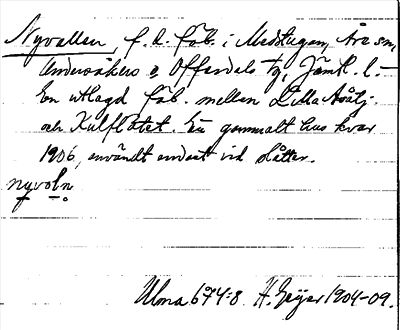 Nyvallen, f. d. fäb. i Medstugan, Åre sn,
Undersåkers o Offerdals tg, Jämtl. l. -
En utlagd fäb. mellan Lilla
och Kulflötet. Ett gammalt hus kvar
1906, användt endast vid slåtter.
nyvoln
Ulma 674:8. H. Geijer 1904-09.